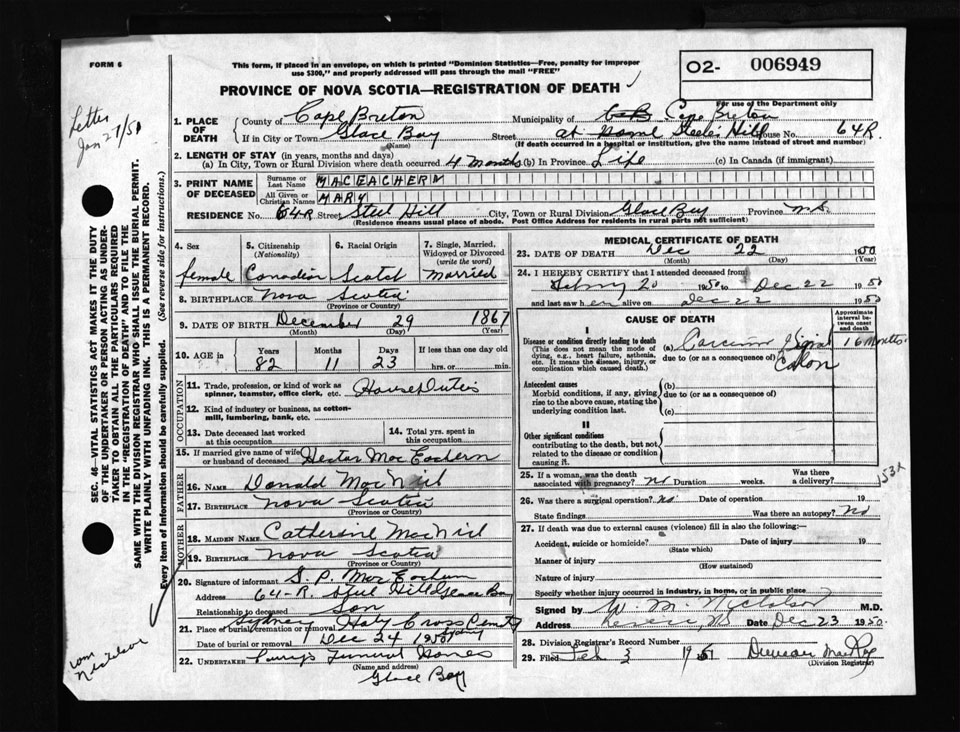 FORM 6
This form, if placed in an envelope, on which is printed "Dominion Statistics—Free, penalty for improper
use $300," and properly addressed will pass through the mail "FREE"
O2- 006949
PROVINCE OF NOVA SCOTIA—REGISTRATION OF DEATH
For use of the Department only
Letter
Jan 27/51
1. PLACE OF DEATH
County of Cape Breton Municipality of Cape Breton
If in City or Town Glace Bay Street at home Steele Hill House No. 64R.
(Name) (If death occurred in a hospital or institution, give the name instead of street and number)
2. LENGTH OF STAY (in years, months and days)
(a) In City, Town or Rural Division where death occurred 4 Months (b) In Province Life (c) In Canada (if immigrant)
3. PRINT NAME OF DECEASED
Surname or Last Name MACEACHERN
All Given or Christian Names MARY
RESIDENCE No. 64R Street Steel Hill City, Town or Rural Division Glace Bay Province N.S.
(Residence means usual place of abode. Post Office Address for residents in rural parts not sufficient)
4. Sex
female
5. Citizenship
(Nationality)
Canadian
6. Racial Origin
Scotch
7. Single, Married, Widowed or Divorced
(write the word)
Married
8. BIRTHPLACE Nova Scotia
(Province or Country)
9. DATE OF BIRTH December 29 1867
(Month) (Day) (Year)
10. AGE in Years Months Days If less than one day old
82 11 23 hrs. or min.
OCCUPATION
11. Trade, profession, or kind of work as
spinner, teamster, office clerk, etc. House Duties
12. Kind of industry or business, as cotton-
mill, lumbering, bank, etc.
13. Date deceased last worked
at this occupation
14. Total yrs. spent in
this occupation
15. If married give name of wife
or husband of deceased Hector MacEachern
FATHER
16. Name Donald MacNeil
17. Birthplace Nova Scotia
(Province or Country)
MOTHER
18. Maiden Name Catherine MacNeil
19. Birthplace Nova Scotia
(Province or Country)
20. Signature of informant S. P. MacEachern
Address 64-R. Steel Hill Glace Bay
Relationship to deceased Son
21. Place of burial, cremation or removal Sydney Holy Cross Cemety
Date of burial or removal Dec 24 1950 Sydney
22. UNDERTAKER Funeral Homes
(Name and address)
Glace Bay
MEDICAL CERTIFICATE OF DEATH
23. DATE OF DEATH Dec 22 1950
(Month) (Day) (Year)
24. I HEREBY CERTIFY that I attended deceased from
20 1950 to Dec 22 1950
and last saw her alive on Dec 22 1950
CAUSE OF DEATH
Approximate interval between onset and death
I
Disease or condition directly leading to death
(This does not mean the mode of
dying, e.g., heart failure, asthenia,
etc. It means the disease, injury, or
complication which caused death.)
(a) Carcinoma Sigmoid 16 Months
due to (or as a consequence of) Colon
Antecedent causes
Morbid conditions, if any, giving
rise to the above cause, stating the
underlying condition last.
(b)
due to (or as a consequence of)
(c)
II
Other significant conditions
contributing to the death, but not
related to the disease or condition
causing it.
25. If a woman, was the death
associated with pregnancy? No Duration weeks. Was there
a delivery?
153X
26. Was there a surgical operation? No Date of operation 19
State findings Was there an autopsy? No
27. If death was due to external causes (violence) fill in also the following:—
Accident, suicide or homicide? Date of injury 19
(State which)
Manner of injury
(How sustained)
Nature of injury
Specify whether injury occurred in industry, in home, or in public place
Signed by W. M. Nicholson M.D.
Address Reserve, NS Date Dec 23 1950.
28. Division Registrar's Record Number
29. Filed Feb 3 1951 Duncan
(Division Registrar)
SEC. 46—VITAL STATISTICS ACT MAKES IT THE DUTY
OF THE UNDERTAKER OR PERSON ACTING AS UNDER-
TAKER TO OBTAIN ALL THE PARTICULARS REQUIRED
IN THE "REGISTRATION OF DEATH" AND TO FILE THE
SAME WITH THE DIVISION REGISTRAR WHO SHALL ISSUE THE BURIAL PERMIT.
WRITE PLAINLY WITH UNFADING INK. THIS IS A PERMANENT RECORD.
Every item of information should be carefully supplied. (See reverse side for instructions.)